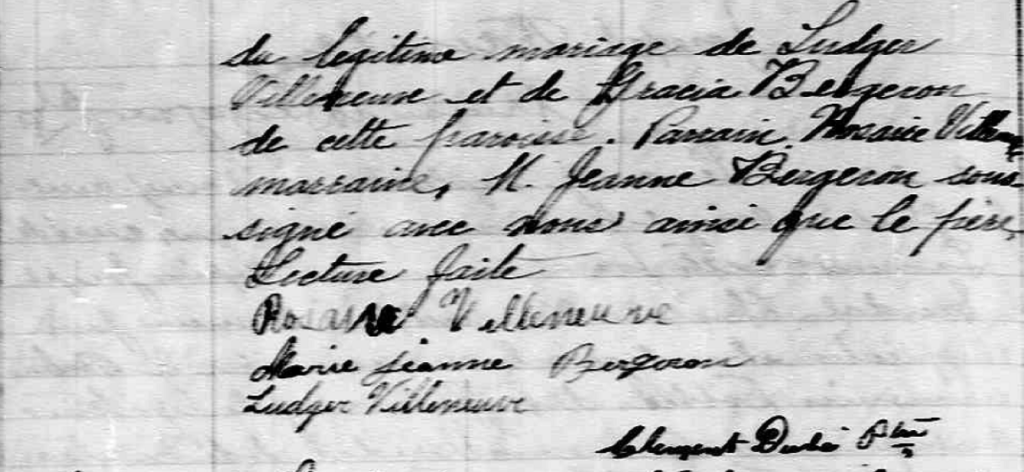 du légitime mariage de Ludger
Villeneuve et de Gracia Bergeron
de cette paroisse. Parrain, Rosaire Villeneuve
marraine, M. Jeanne Bergeron sous
signé avec nous ainsi que le père,
Lecture faite
Rosaire Villeneuve
Marie jeanne Bergeron
Ludger Villeneuve
Clement Ptre